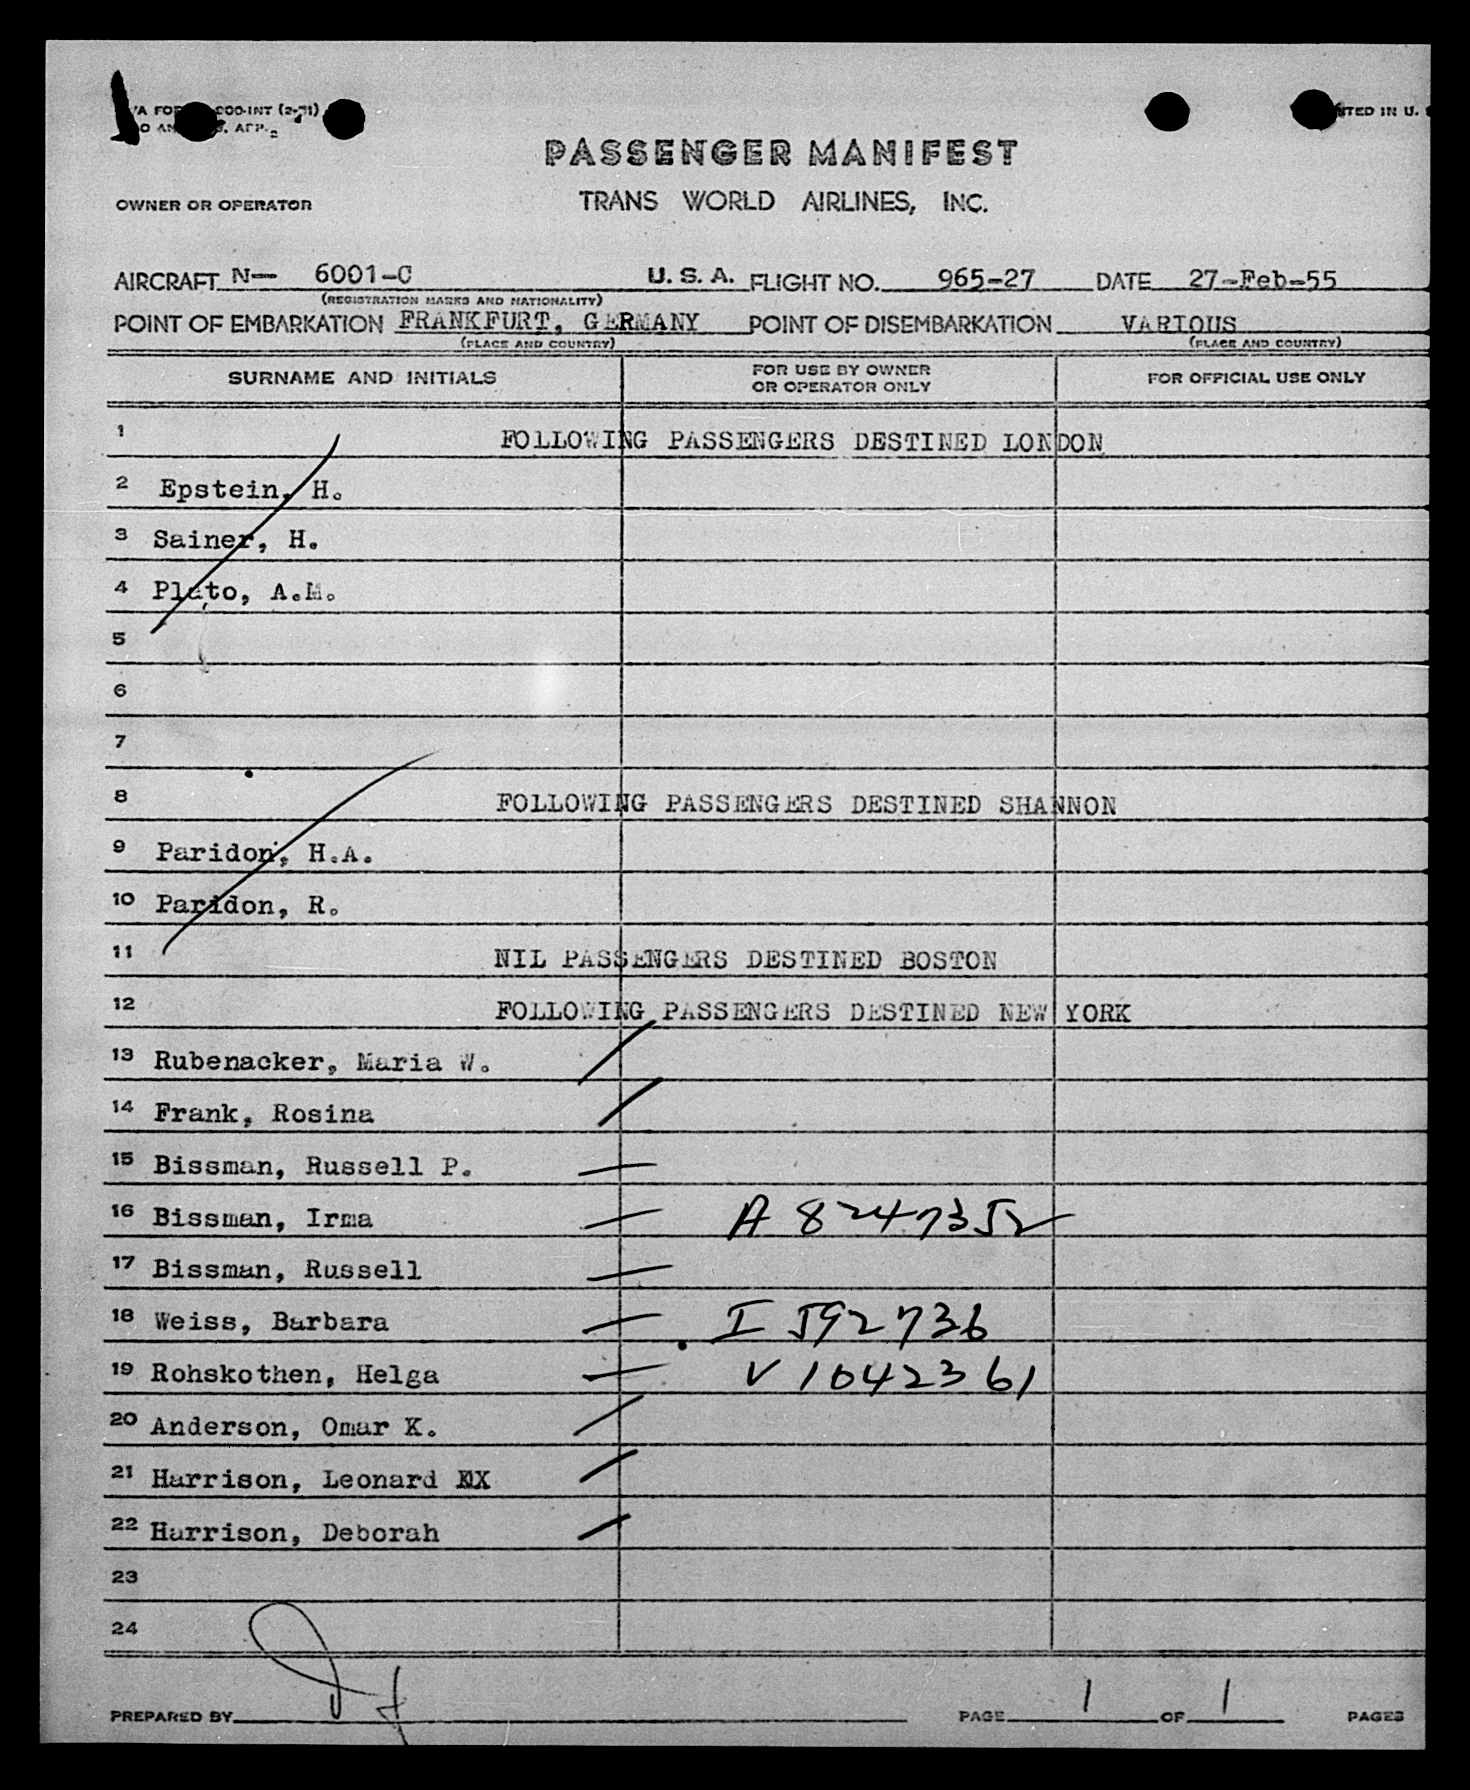 000-INT (2-51)
PASSENGER MANIFEST
OWNER OR OPERATOR TRANS WORLD AIRLINES, INC.
AIRCRAFT N— 6001-C U. S. A. FLIGHT NO. 965-27 DATE 27-Feb-55
(REGISTRATION MARKS AND NATIONALITY)
POINT OF EMBARKATION FRANKFURT, GERMANY POINT OF DISEMBARKATION VARIOUS
(PLACE AND COUNTRY) (PLACE AND COUNTRY)
SURNAME AND INITIALS FOR USE BY OWNER OR OPERATOR ONLY FOR OFFICIAL USE ONLY
1 FOLLOWING PASSENGERS DESTINED LONDON
2 Epstein, H.
3 Sainer, H.
4 Plato, A.M.
5
6
7
8 FOLLOWING PASSENGERS DESTINED SHANNON
9 Paridon, H.A.
10 Paridon, R.
11 NIL PASSENGERS DESTINED BOSTON
12 FOLLOWING PASSENGERS DESTINED NEW YORK
13 Rubenacker, Maria W.
14 Frank, Rosina
15 Bissman, Russell P.
16 Bissman, Irma A 8247352
17 Bissman, Russell
18 Weiss, Barbara I 592736
19 Rohskothen, Helga V 1042361
20 Anderson, Omar K.
21 Harrison, Leonard
22 Harrison, Deborah
23
24
PREPARED BY PAGE 1 OF 1 PAGES